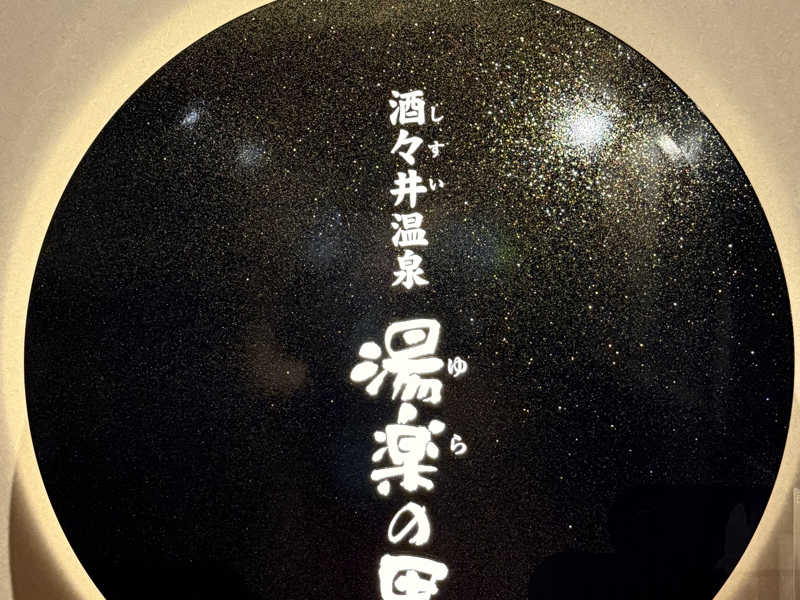 酒々井温泉
しすい
湯楽の里
ゆら